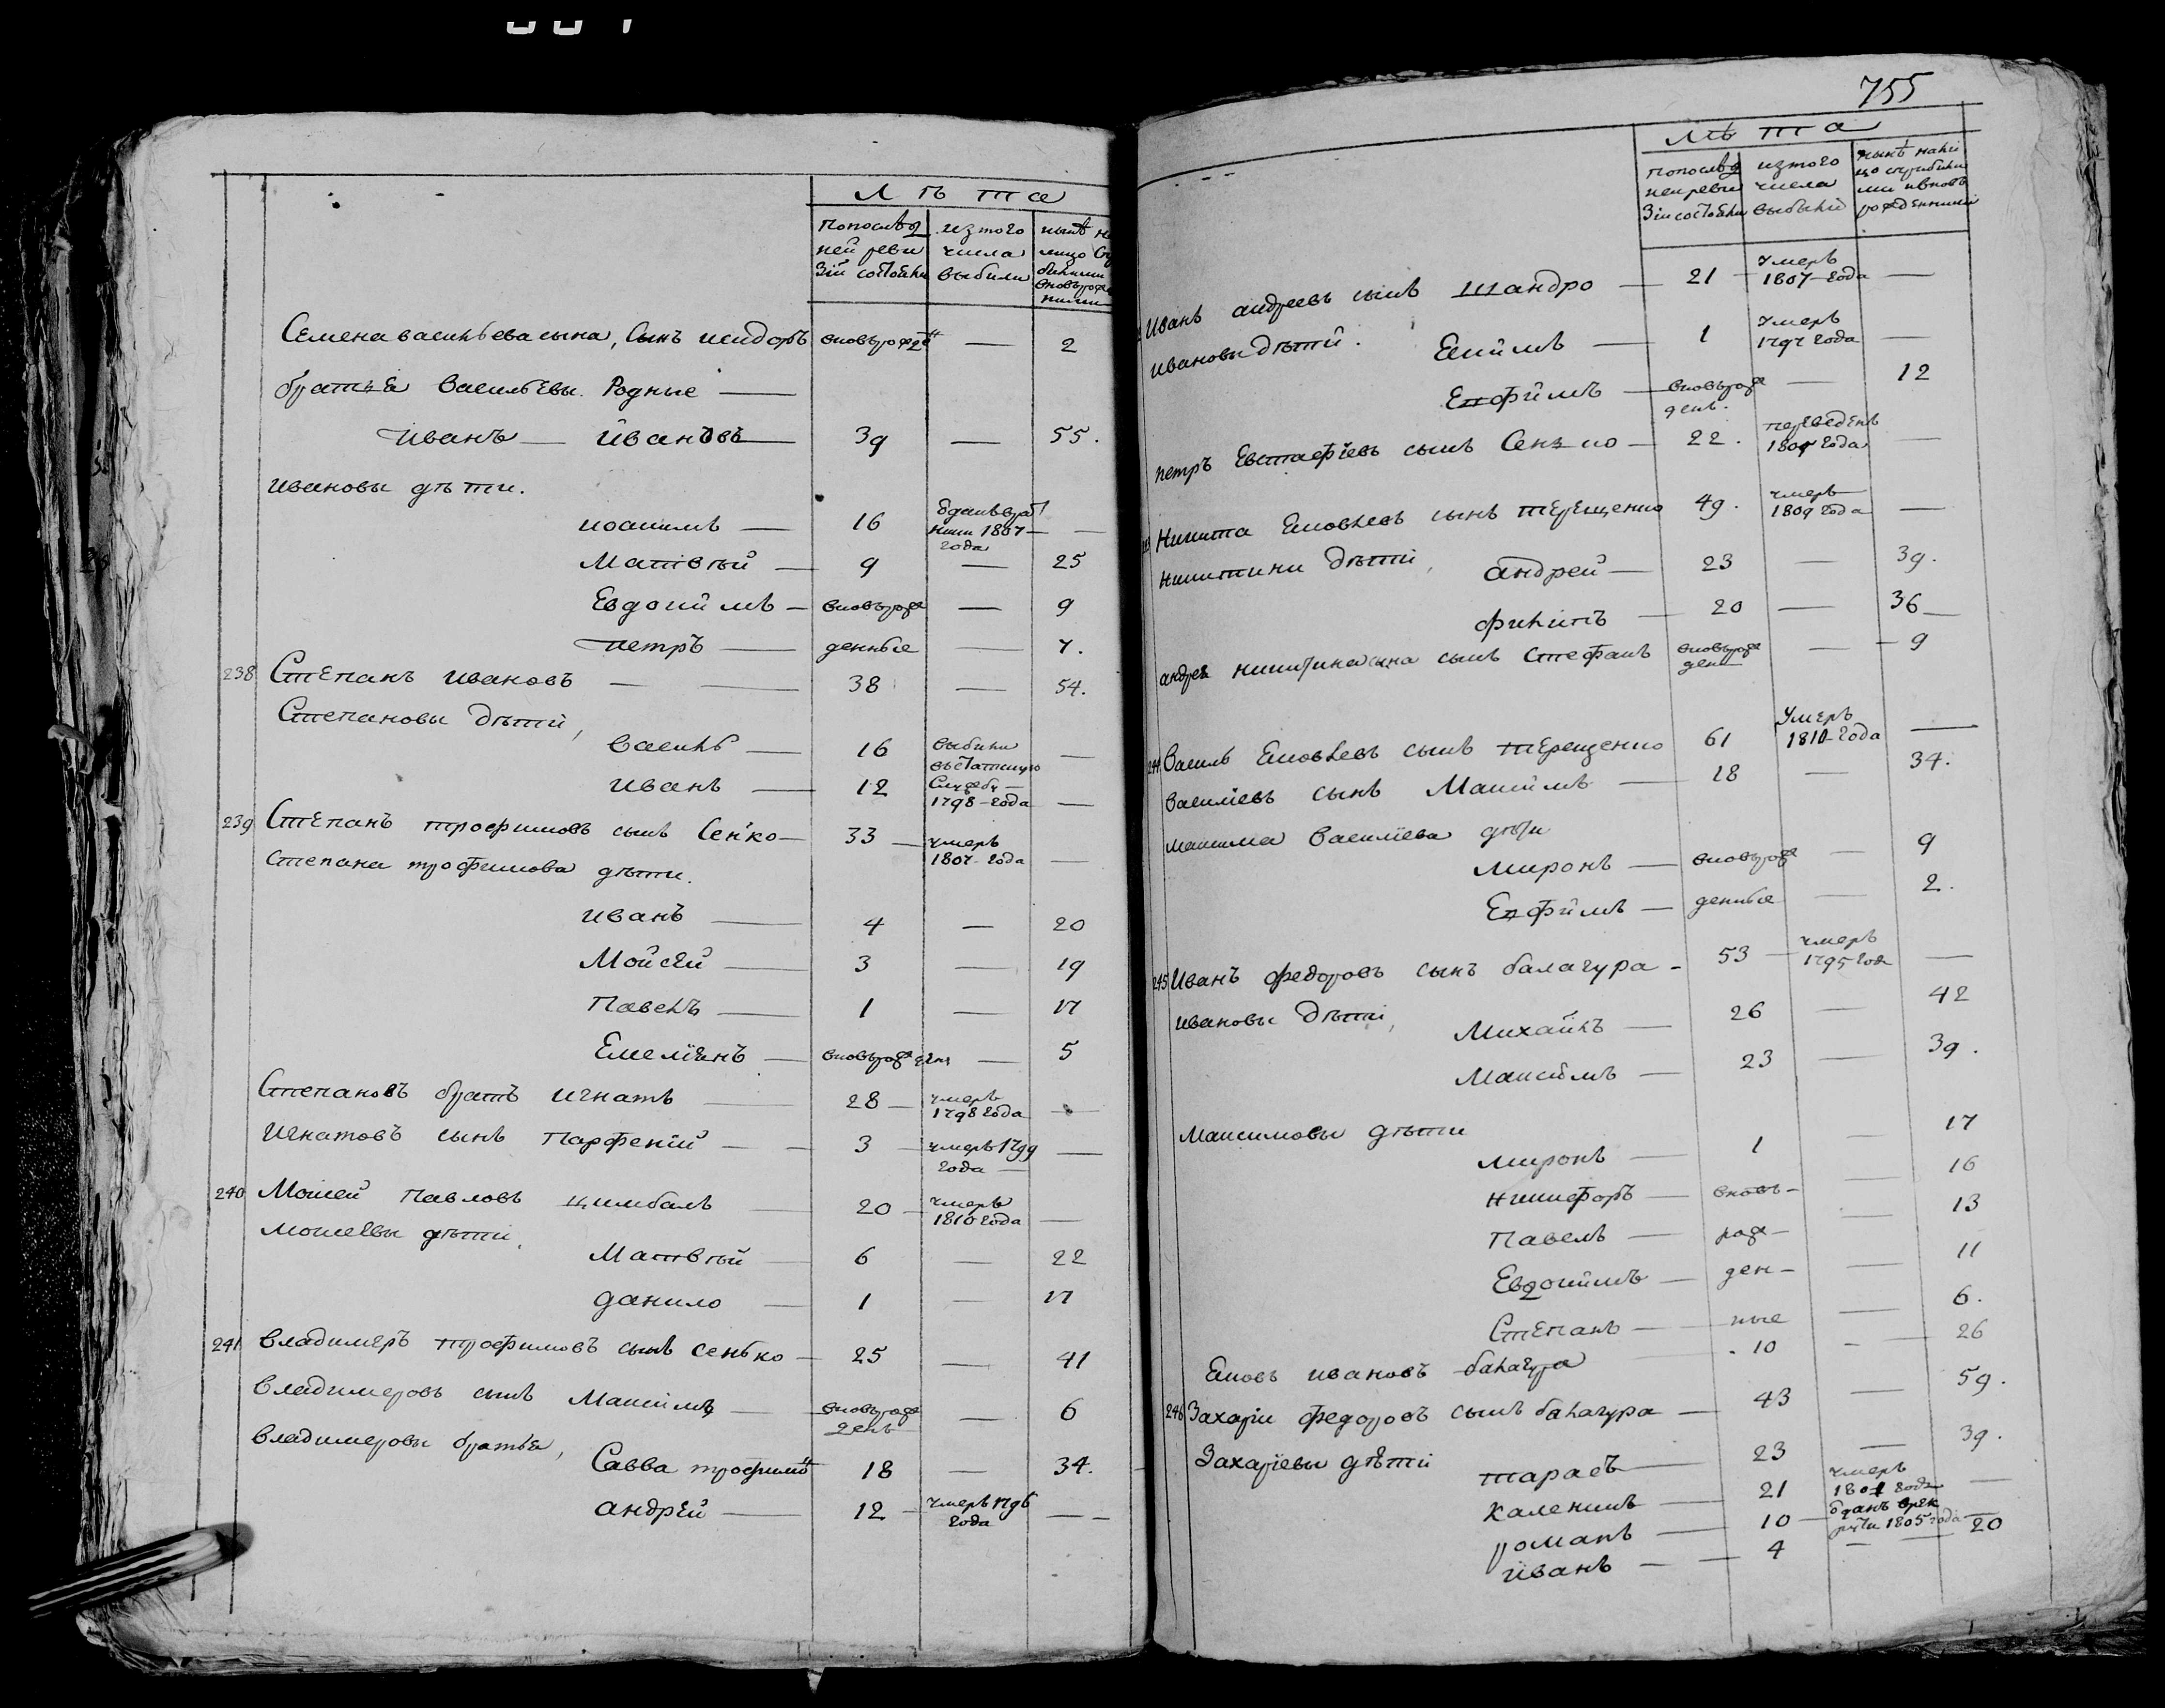 Лѣта
попослѣд изтого нынѣ на
ней реви числа лицо Со
зіи состояли выбыли
вновърожд
Семена васильева сына, Сынъ исидоръ вновърожде — 2
братья Васильевы Родные —
иванъ — ивановъ — 39 — 55.
ивановы дѣти.
иоакимъ — 16 1807 — года —
Матвѣй — 9 — 25
Евдокимъ — вновърож — 9
петръ — денные — 7.
238 Степанъ ивановъ — 38 — 54.
Степановы дѣти,
Василь — 16 выбыли —
иванъ — 12 Службу — 1798 — года —
239 Степанъ трофимовъ сынъ Сенько — 33 — умеръ 1807 года —
Степана трофимова дѣти.
иванъ — 4 — 20
Мойсей — 3 — 19
Павелъ — 1 — 17
Емеліянъ — вновърожден — 5
Степановъ братъ игнатъ — 28 — умеръ 1798 года —
Игнатовъ сынъ Парфеній — 3 — умеръ 1799 года —
240 Мойсей Павловъ цимбалъ — 20 — умеръ 1810 года —
Мойсеевы дѣти,
Матвѣй — 6 — 22
данило — 1 — 17
241 Владимеръ трофимовъ сынъ сенько — 25 — 41
Владимеровъ сынъ Максимъ — вновърож день — 6
Владимеровы братья, Савва трофимов 18 — 34.
андрей — 12 — умеръ 1796 года —
755
Лѣта
попослѣд изтого нынѣ нали
ней реви числа цо слубыли
зіи состояли выбыли ми ивновъ рожденними
Иванъ андреевъ сынъ Шандро — 21 — умеръ 1807 года —
ивановы дѣти. Екимъ — 1 умеръ 1797 года —
Ефимъ — вновърож день. — 12
петръ Евстафіевъ сынъ Сенько — 22. переведенъ года —
Никита Яковлевъ сынъ терещенко 49. умеръ 1809 года —
никитини дѣти, андрей — 23 — 39.
филипъ — 20 — 36 —
андрея никитина сына сынъ Стефанъ вновърож ден — 9
244 Василь Яковлевъ сынъ терещенко 61 умеръ 1810 года —
Василіевъ сынъ Максимъ — 18 — 34.
максима Василіева дѣти
миронъ — вновърож — 9
Ефимъ — денные — 2.
245 Иванъ федоровъ сынъ балагура — 53 — умеръ 1795 года —
ивановы дѣти, Михайлъ — 26 — 42
Максимъ — 23 — 39.
Максимовы дѣти
миронъ — 1 — 17
никифоръ — вновъ — 16
Павелъ — рож — 13
Евдокимъ — ден — 11
Степанъ — ные — 6.
Яковъ ивановъ балагура 10 — 26
246 Захарій федоровъ сынъ балагура — 43 — 59.
Захаріевы дѣти тарасъ — 23 — 39.
каленикъ — 21 умеръ года —
романъ — 10 — отданъ врек руты 1805 года —
иванъ — 4 — 20